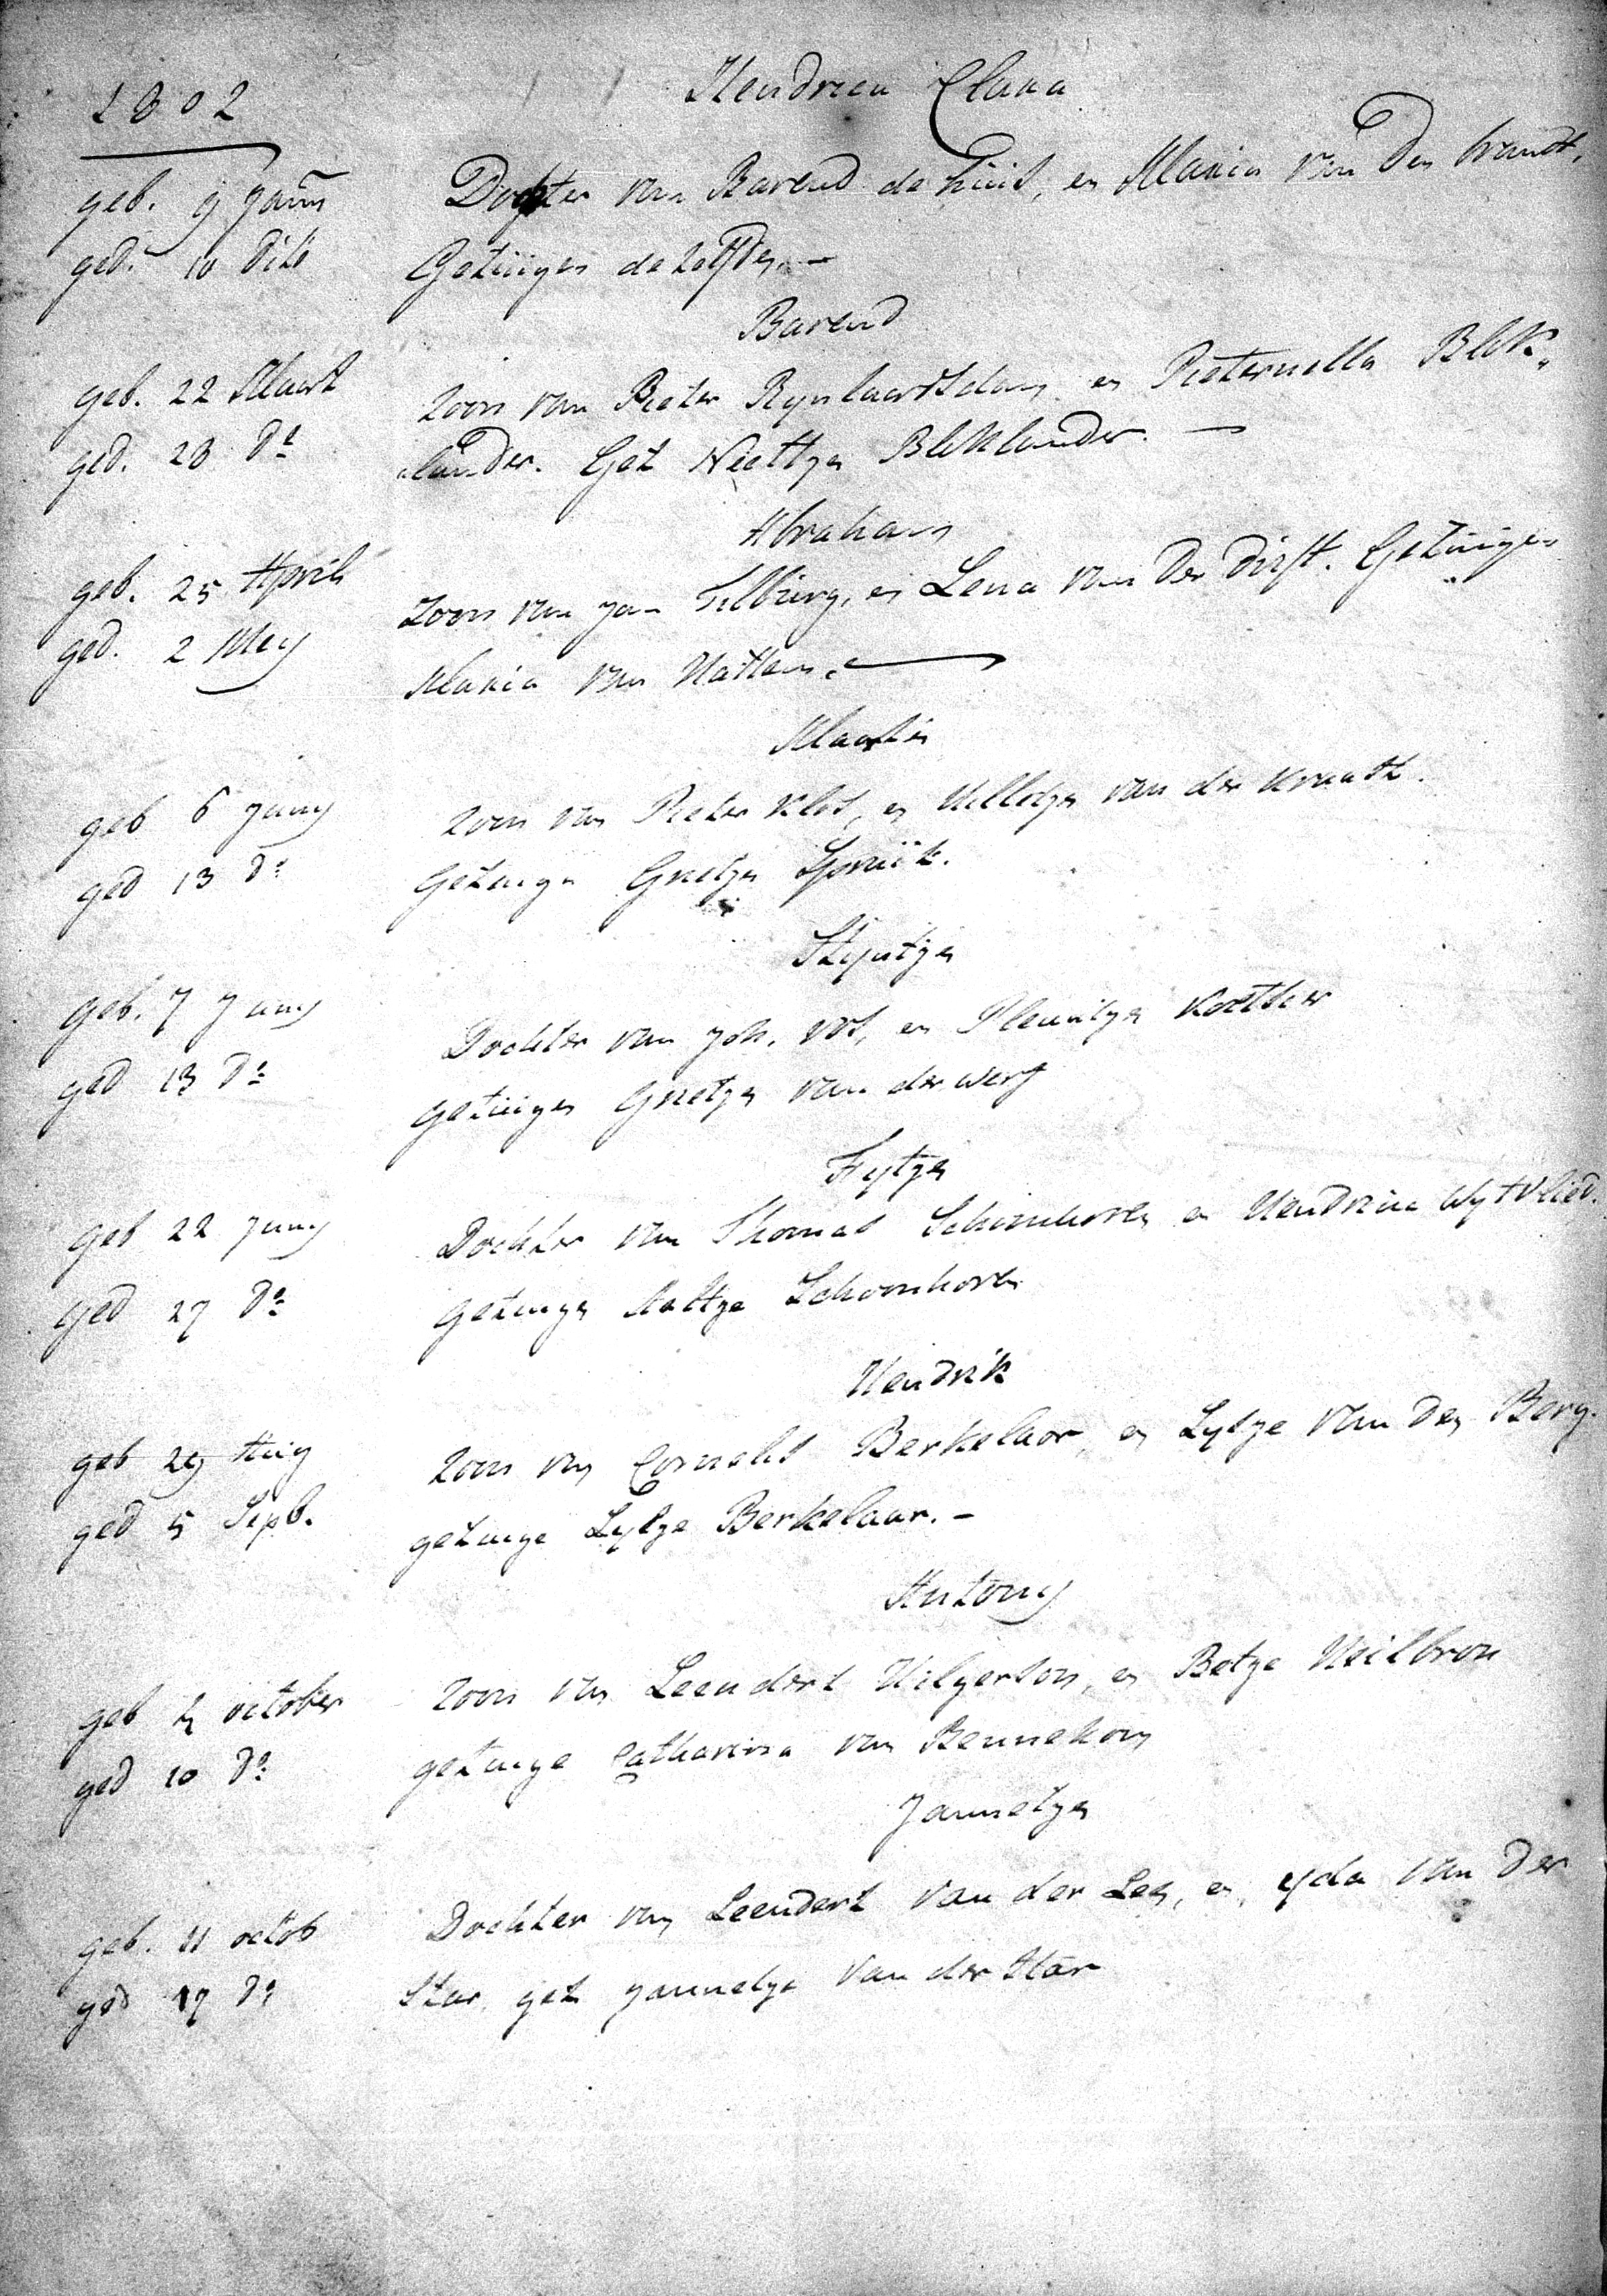 1802
Hendrica Clara
geb. 9 Janu Dochter van Barend de Huis, en Maria van den brandt.
ged. 10 dito Getuigen de zelfden. —
Barend
geb. 22 Maart Zoon van Pieter Rynlaarsdam en Pieternella Blok„
ged. 28 do „lander. Get Neeltje Bloklander. —
Abraham
geb. 25 April Zoon van Jan Tilburg, en Lena van der Dirst. Getuigen
ged. 2 Mey Maria van Hattem. —
Maarten
geb 6 Juny Zoon van Pieter Klos, en Willetje van der Kraats.
ged 13 do Getuige Grietje Spruit.
Styntje
geb. 7 Juny Dochter van Joh. Vos, en Pleuntje
ged 13 do getuigen Grietje van der Werf
Fytje
geb 22 Juny Dochter van Thomas Schoonhoven en Hendrina Uytvlied.
ged 27 do getuige Aaltje Schoonhoven
Hendrik
geb 29 Aug Zoon van Cornelis Berkelaar, en Lytje van den Berg.
ged 5 Sepb. getuige Lytje Berkelaar. —
Antony
geb 4 october Zoon van Leendert Hilgerson, en Betje Heilbron
ged 10 do getuige Catharina van Bennekom
Jannetje
geb. 11 octob Dochter van Leendert van der Lee, en yda van der
ged 17 do Star, get Jannetje van der Star